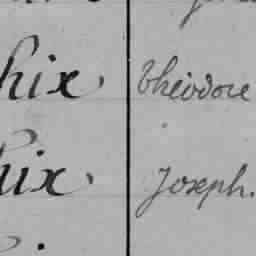 hix, Théodore
hix, Joseph.